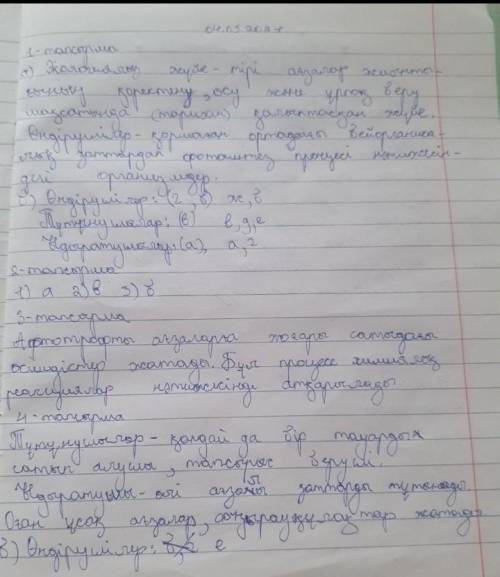 04.05.2021
1-тапсырма
а) Экологиялық жүйе - тірі ағзалар жиынты-
ғының қоректену, өсу және ұрпақ беру
мақсатында (тарихи) қалыптасқан жүйе.
Өндірушілер - қоршаған ортадағы бейорганика-
лық заттардан фотосинтез процесі нәтижесін-
дегі организмдер.
б) Өндірушілер: (2, б) ж, б
Тұтынушылар: (в) в, д, е
Ыдыратушылар: (а), а, г
2-тапсырма
1) а 2) в 3) б
3-тапсырма
Автотрофты ағзаларға жоғары сатыдағы
өсімдіктер жатады. Бұл процесс химиялық
реакциялар нәтижесінде атқарылады
4-тапсырма
Тұтұнушылар - қандай да бір тауардың
сатып алушы, тапсырыс беруші.
Ыдыратушы - өлі ағзалы заттарды тұтынады
Оған ұсақ ағзалар, саңырауқұлақтар жатады
б) Өндірушілер: е